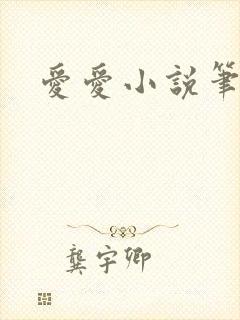 愛愛小說筆
龔宇卿